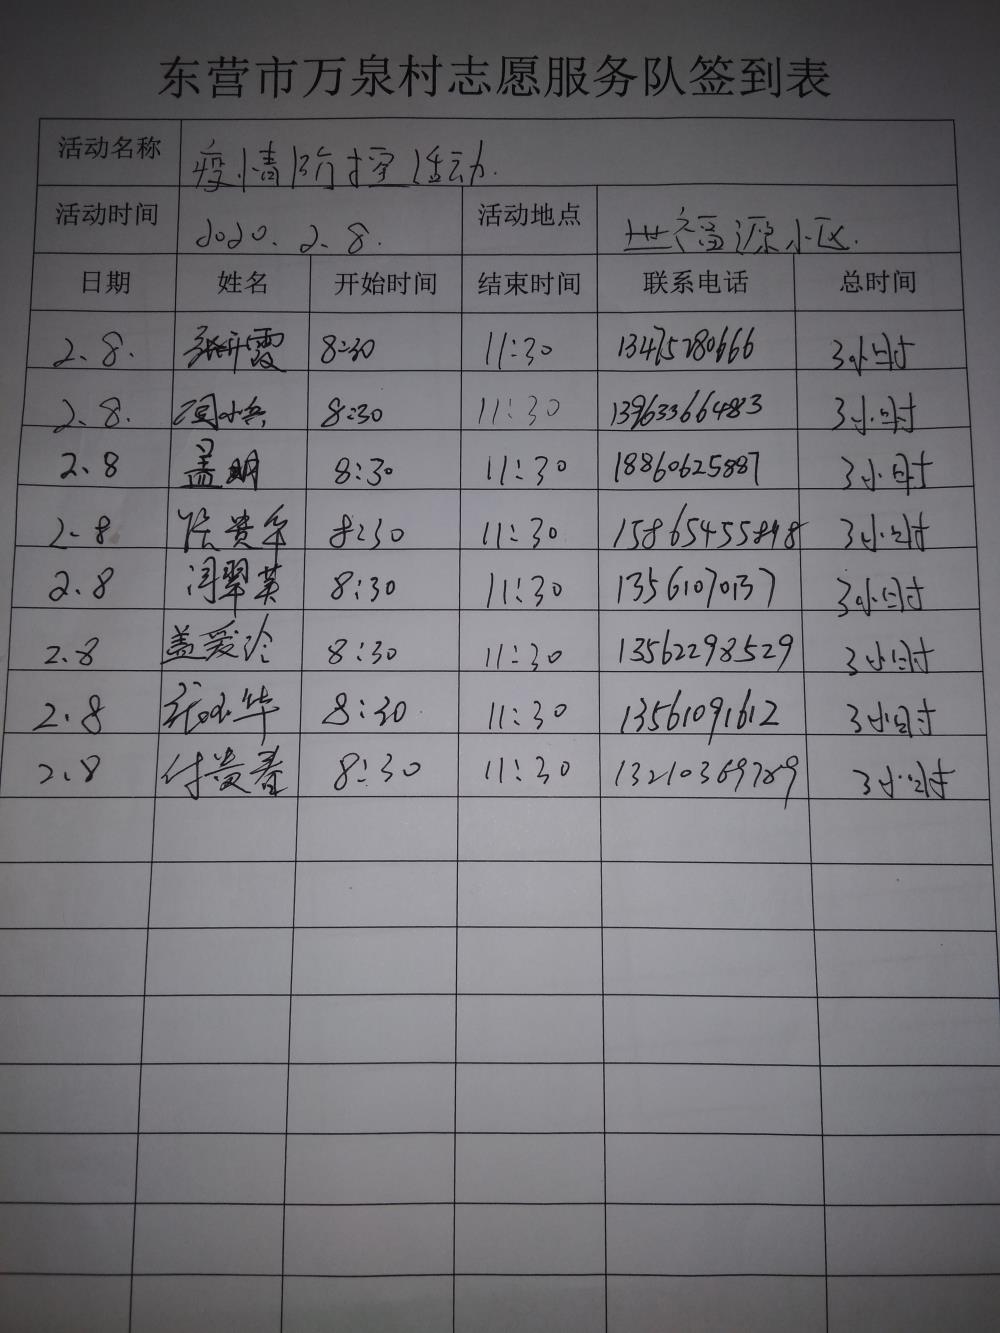 东营市万泉村志愿服务队签到表
活动名称 疫情防控活动.
活动时间 2020.2.8. 活动地点 世福源小区.
日期 姓名 开始时间 结束时间 联系电话 总时间
2.8. 张升霞 8:30 11:30 13475280666 3小时
2.8. 闫小兵 8:30 11:30 13963366483 3小时
2.8 盖明 8:30 11:30 18860625887 3小时
2.8 张贵华 8:30 11:30 15865455898 3小时
2.8 闫翠英 8:30 11:30 13561070137 3小时
2.8 盖爱玲 8:30 11:30 13562298529 3小时
2.8 张小华 8:30 11:30 13561091612 3小时
2.8 付贵春 8:30 11:30 13210369789 3小时